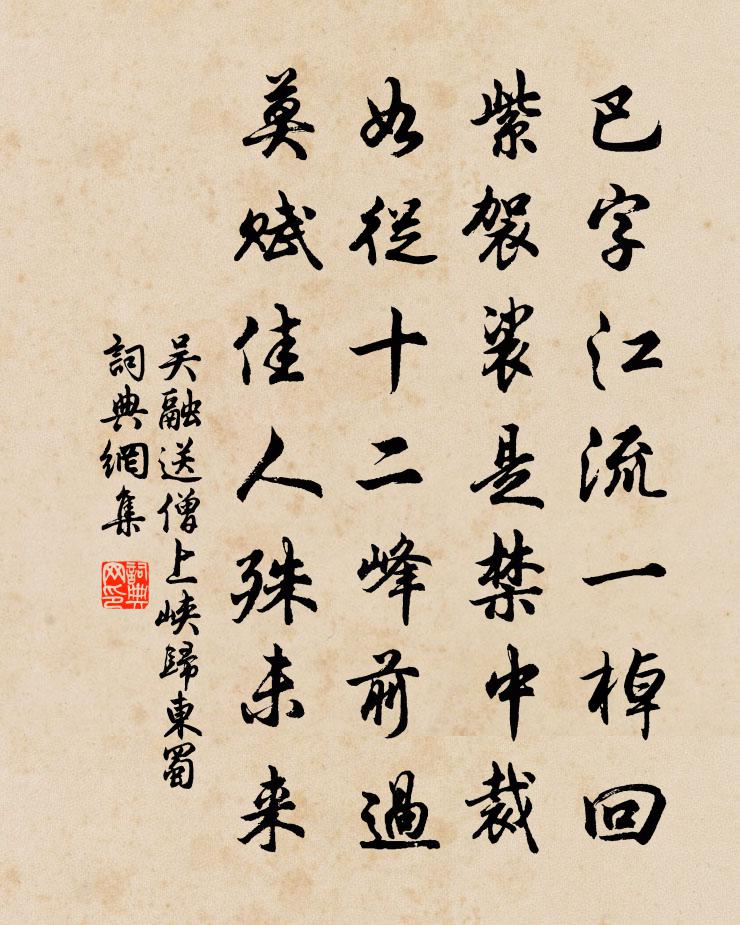 巴字江流一棹回
紫袈裟是禁中裁
如從十二峰前過
莫賦佳人殊未来
吳融送僧上峽歸東蜀
詞典網集
詞典
网印